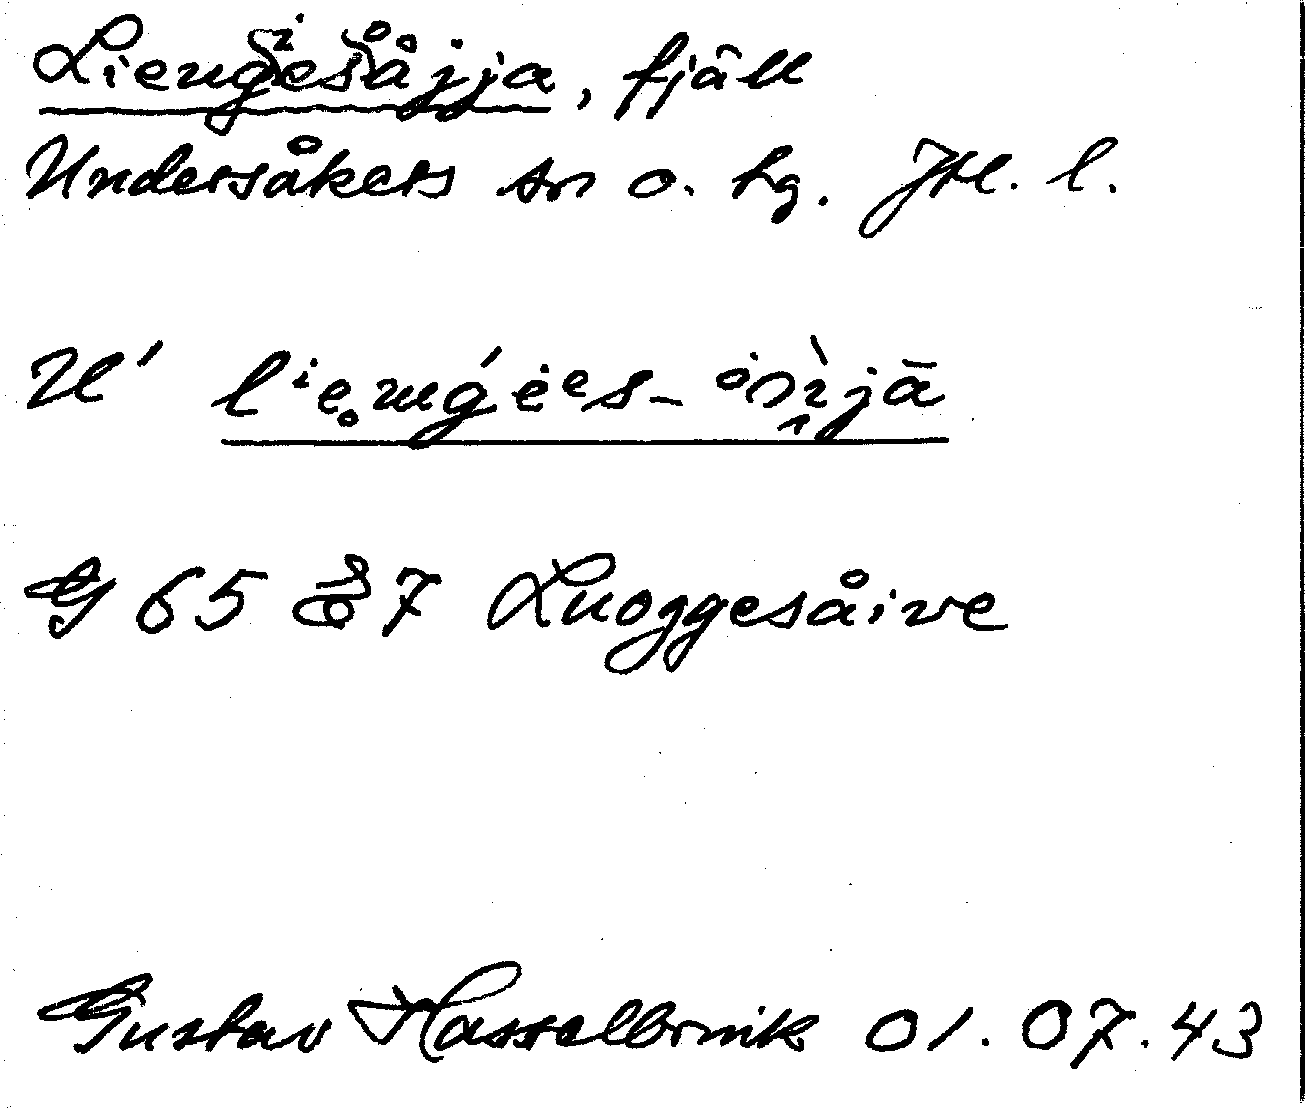 Liengesåjja, fjäll
Undersåkers sn o. hg. Jtl. l.
U'
G 65 Luoggesåive
Gustav Hasselbrink 01.07.43